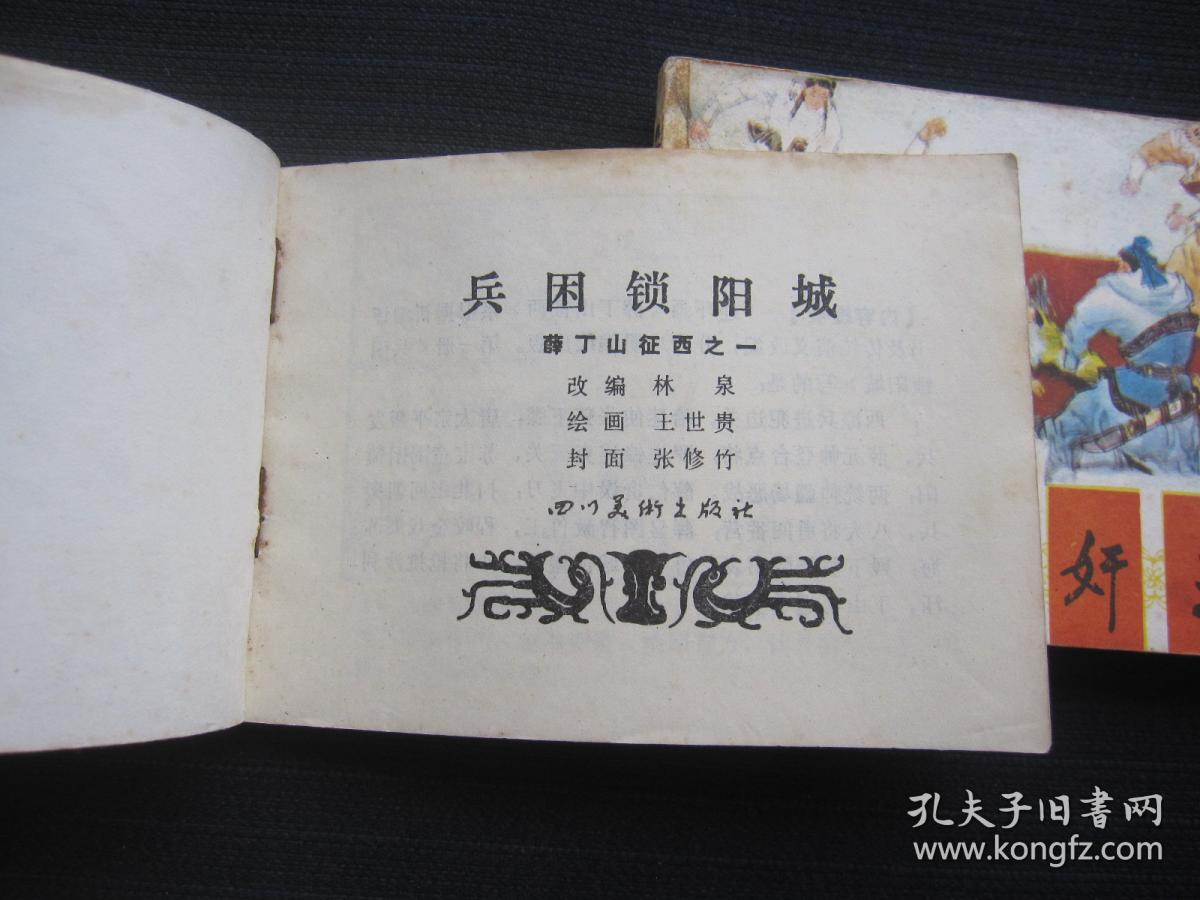 兵困锁阳城
薛丁山征西之一
改编 林 泉
绘画 王世贵
封面 张修竹
四川美術出版社
奸
孔夫子旧书网
www.kongfz.com